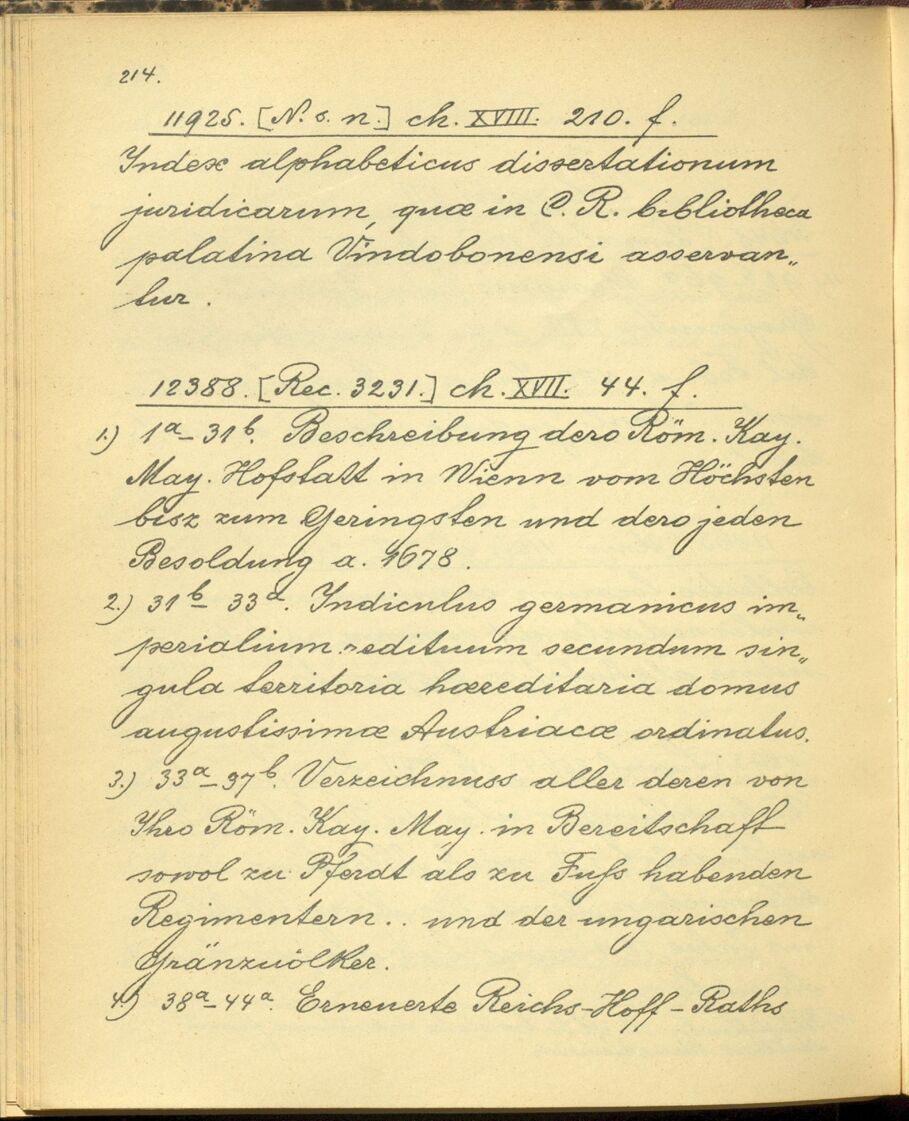 214.
11925. [N. s. n.] ch. XVIII. 210. f.
Index alphabeticus dissertationum
juridicarum, quæ in C. R. bibliotheca
palatina Vindobonensi asservan„
tur.
12388. [Rec. 3231.] ch. XVII. 44. f.
1.) 1ª–31ᵇ. Beschreibung dero Röm. Kay.
May. Hofstatt in Wienn vom Höchsten
bisz zum Geringsten und dero jeden
Besoldung a. 1678.
2.) 31ᵇ–33ª. Indiculus germanicus im„
perialium redituum secundum sin„
gula territoria hæreditaria domus
augustissimæ Austriacæ ordinatus.
3.) 33ª–37ᵇ. Verzeichnuss aller deren von
Ihro Röm. Kay. May. in Bereitschaft
sowol zu Pferdt als zu Fuſs habenden
Regimentern.. und der ungarischen
Gränzvölker.
4.) 38ª–44ª. Erneuerte Reichs-Hoff-Raths